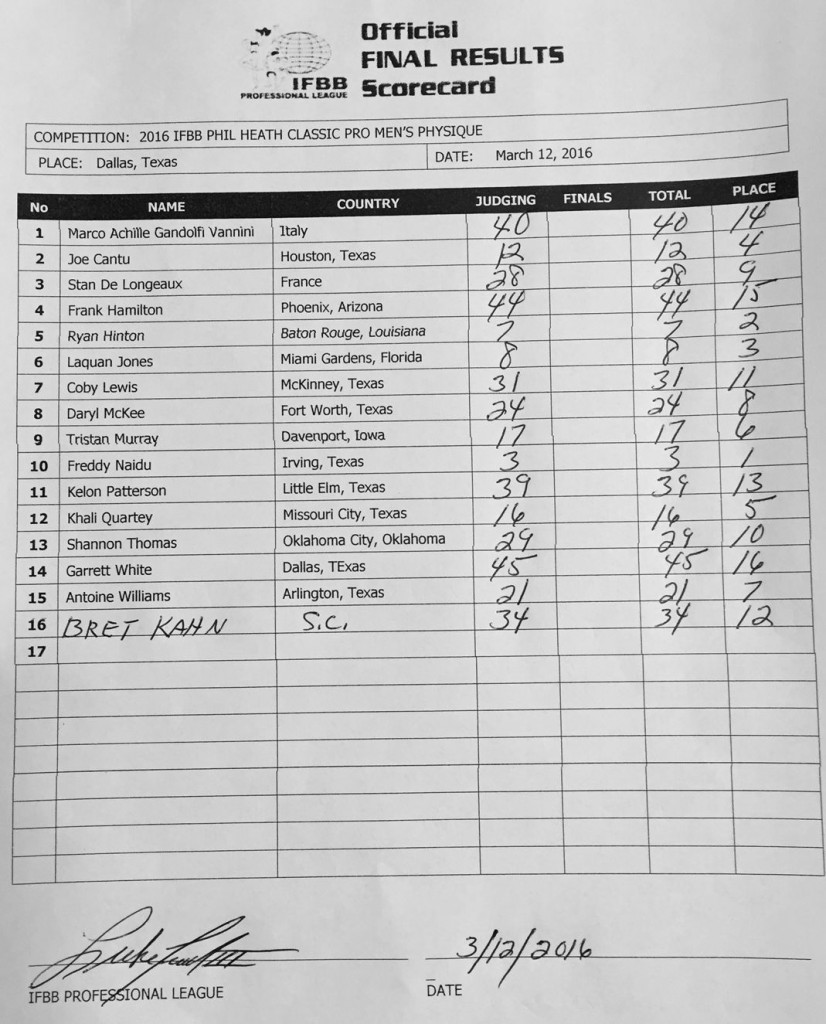 Official
FINAL RESULTS
Scorecard
IFBB
PROFESSIONAL LEAGUE
COMPETITION: 2016 IFBB PHIL HEATH CLASSIC PRO MEN'S PHYSIQUE
PLACE: Dallas, Texas DATE: March 12, 2016
No NAME COUNTRY JUDGING FINALS TOTAL PLACE
1 Marco Achille Gandolfi Vannini Italy 40 40 14
2 Joe Cantu Houston, Texas 12 12 4
3 Stan De Longeaux France 28 28 9
4 Frank Hamilton Phoenix, Arizona 44 44 15
5 Ryan Hinton Baton Rouge, Louisiana 7 7 2
6 Laquan Jones Miami Gardens, Florida 8 8 3
7 Coby Lewis McKinney, Texas 31 31 11
8 Daryl McKee Fort Worth, Texas 24 24 8
9 Tristan Murray Davenport, Iowa 17 17 6
10 Freddy Naidu Irving, Texas 3 3 1
11 Kelon Patterson Little Elm, Texas 39 39 13
12 Khali Quartey Missouri City, Texas 16 16 5
13 Shannon Thomas Oklahoma City, Oklahoma 29 29 10
14 Garrett White Dallas, TExas 45 45 16
15 Antoine Williams Arlington, Texas 21 21 7
16 BRET KAHN S.C. 34 34 12
17
3/12/2016
IFBB PROFESSIONAL LEAGUE DATE